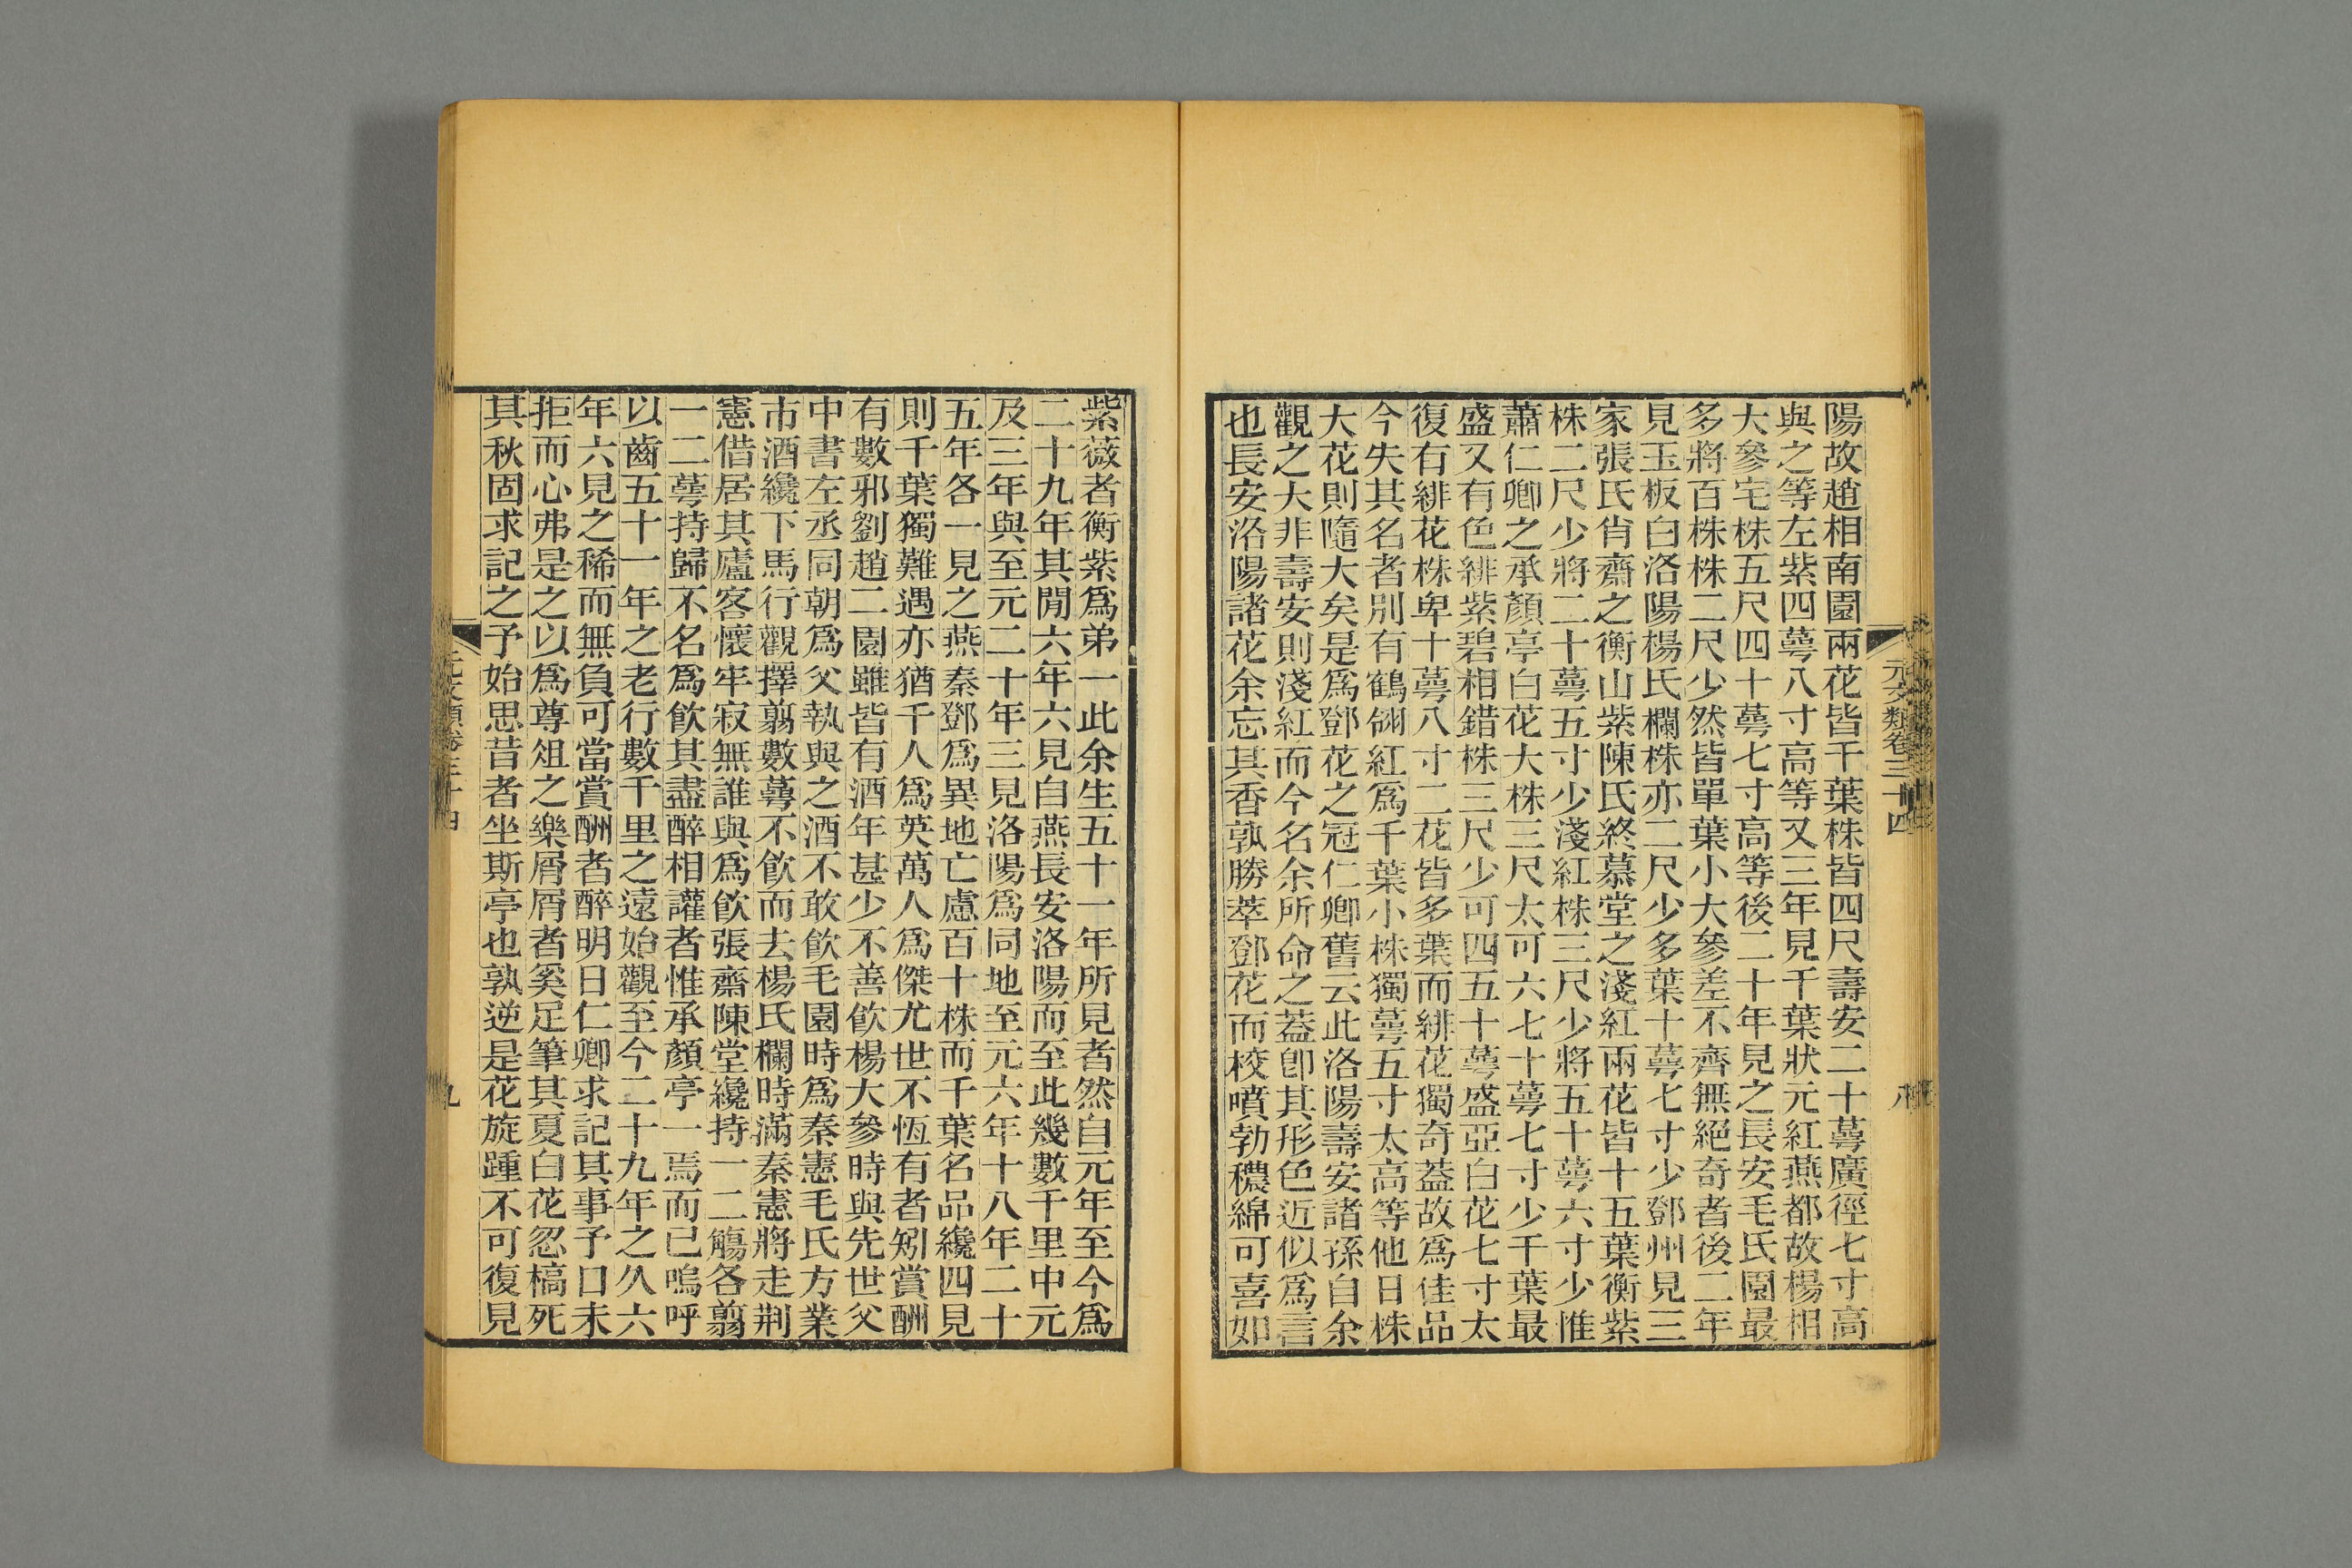 陽故趙相南園兩花皆千葉株皆四尺壽安二十蕚廣徑七寸高
與之等左紫四蕚八寸高等又三年見千葉狀元紅燕都故楊相
大參宅株五尺四十蕚七寸高等後二十年見之長安毛氏園最
多將百株株二尺少然皆單葉小大參差不齊無絕奇者後二年
見玉板白洛陽楊氏欄株亦二尺少多葉十蕚七寸少鄧州見三
家張氏肖齋之衡山紫陳氏終慕堂之淺紅兩花皆十五葉衡紫
株二尺少將二十蕚五寸少淺紅株三尺少將五十蕚六寸少惟
蕭仁卿之承顏亭白花大株三尺太可六七十蕚七寸少千葉最
盛又有色緋紫碧相錯株三尺少可四五十蕚盛亞白花七寸太
復有緋花株卑十蕚八寸二花皆多葉而緋花獨奇葢故爲佳品
今失其名者別有鶴翎紅爲千葉小株獨蕚五寸太高等他日株
大花則隨大矣是爲鄧花之冠仁卿舊云此洛陽壽安諸孫自余
觀之大非壽安則淺紅而今名余所命之葢卽其形色近似爲言
也長安洛陽諸花余忘其香孰勝萃鄧花而校噴勃穠綿可喜如
元文類卷三十四
八
紫薇者衡紫爲弟一此余生五十一年所見者然自元年至今爲
二十九年其閒六年六見自燕長安洛陽而至此幾數千里中元
及三年與至元二十年三見洛陽爲同地至元六年十八年二十
五年各一見之燕秦鄧爲異地亡慮百十株而千葉名品纔四見
則千葉獨難遇亦猶千人爲英萬人爲傑尤世不恆有者矧賞酬
有數邪劉趙二園雖皆有酒年甚少不善飮楊大參時與先世父
中書左丞同朝爲父執與之酒不敢飮毛園時爲秦憲毛氏方業
市酒纔下馬行觀擇翦數蕚不飮而去楊氏欄時滿秦憲將走荆
憲借居其廬客懷牢寂無誰與爲飮張齋陳堂纔持一二觴各翦
一二蕚持歸不名爲飮其盡醉相讙者惟承顏亭一焉而已嗚呼
以齒五十一年之老行數千里之遠始觀至今二十九年之久六
年六見之稀而無負可當賞酬者醉明日仁卿求記其事予口未
拒而心弗是之以爲尊俎之樂屑屑者奚足筆其夏白花忽槁死
其秋固求記之予始思昔者坐斯亭也孰逆是花旋踵不可復見
元文類卷三十四
九